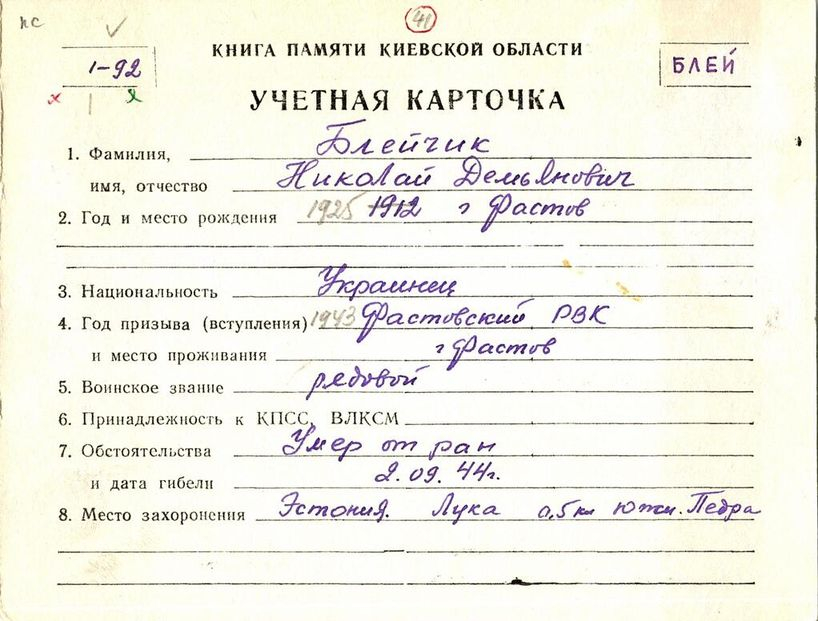 пс
41
КНИГА ПАМЯТИ КИЕВСКОЙ ОБЛАСТИ
1-92
БЛЕЙ
УЧЕТНАЯ КАРТОЧКА
1. Фамилия, Блейчик
имя, отчество Николай Демьянович
2. Год и место рождения 1925 1912 г Фастов
3. Национальность Украинец
4. Год призыва (вступления) 1943 Фастовский РВК
и место проживания г Фастов
5. Воинское звание рядовой
6. Принадлежность к КПСС, ВЛКСМ
7. Обстоятельства Умер от ран
и дата гибели 2.09.44г.
8. Место захоронения Эстония. Лука 0,5 км южн. Педра